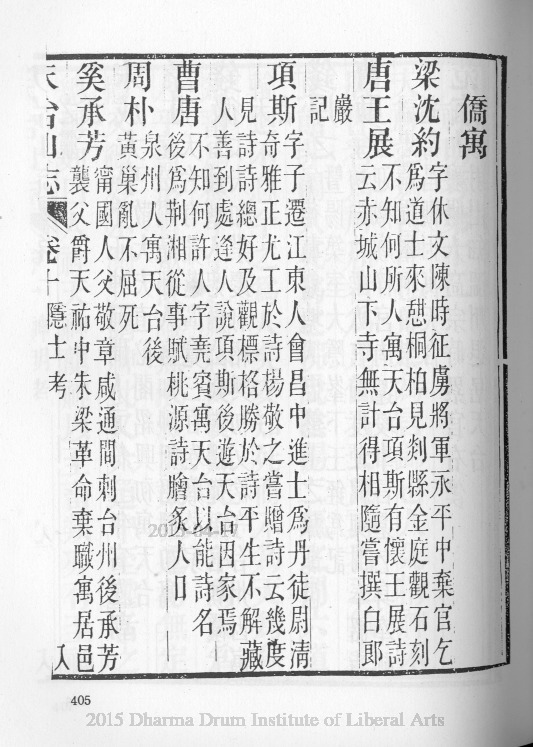 僑寓
梁沈約字休文陳時征虜將軍永平中棄官乞
為道士來憇桐柏見剡縣金庭觀石刻
唐王展不知何所人寓天台項斯有懷王展詩
云赤城山下寺無計得相隨嘗撰白郎
巖
記
項斯字子遷江東人會昌中進士為丹徒尉清
奇雅正尤工於詩楊敬之嘗贈詩云幾度
見詩詩總好及觀標格勝於詩平生不解藏
人善到處逢人說項斯後遊天台因家焉
曹唐不知何許人字堯賓寓天台以能詩名
後為荆湘從事賦桃源詩膾炙人口
周朴泉州人寓天台後
黃巢亂不屈死
奚承芳甯國人父敬章咸通間刺台州後承芳
襲父爵天祐中朱梁革命棄職寓居邑
天台山志 卷十隱士考 八
2015-04-17
405
2015 Dharma Drum Institute of Liberal Arts